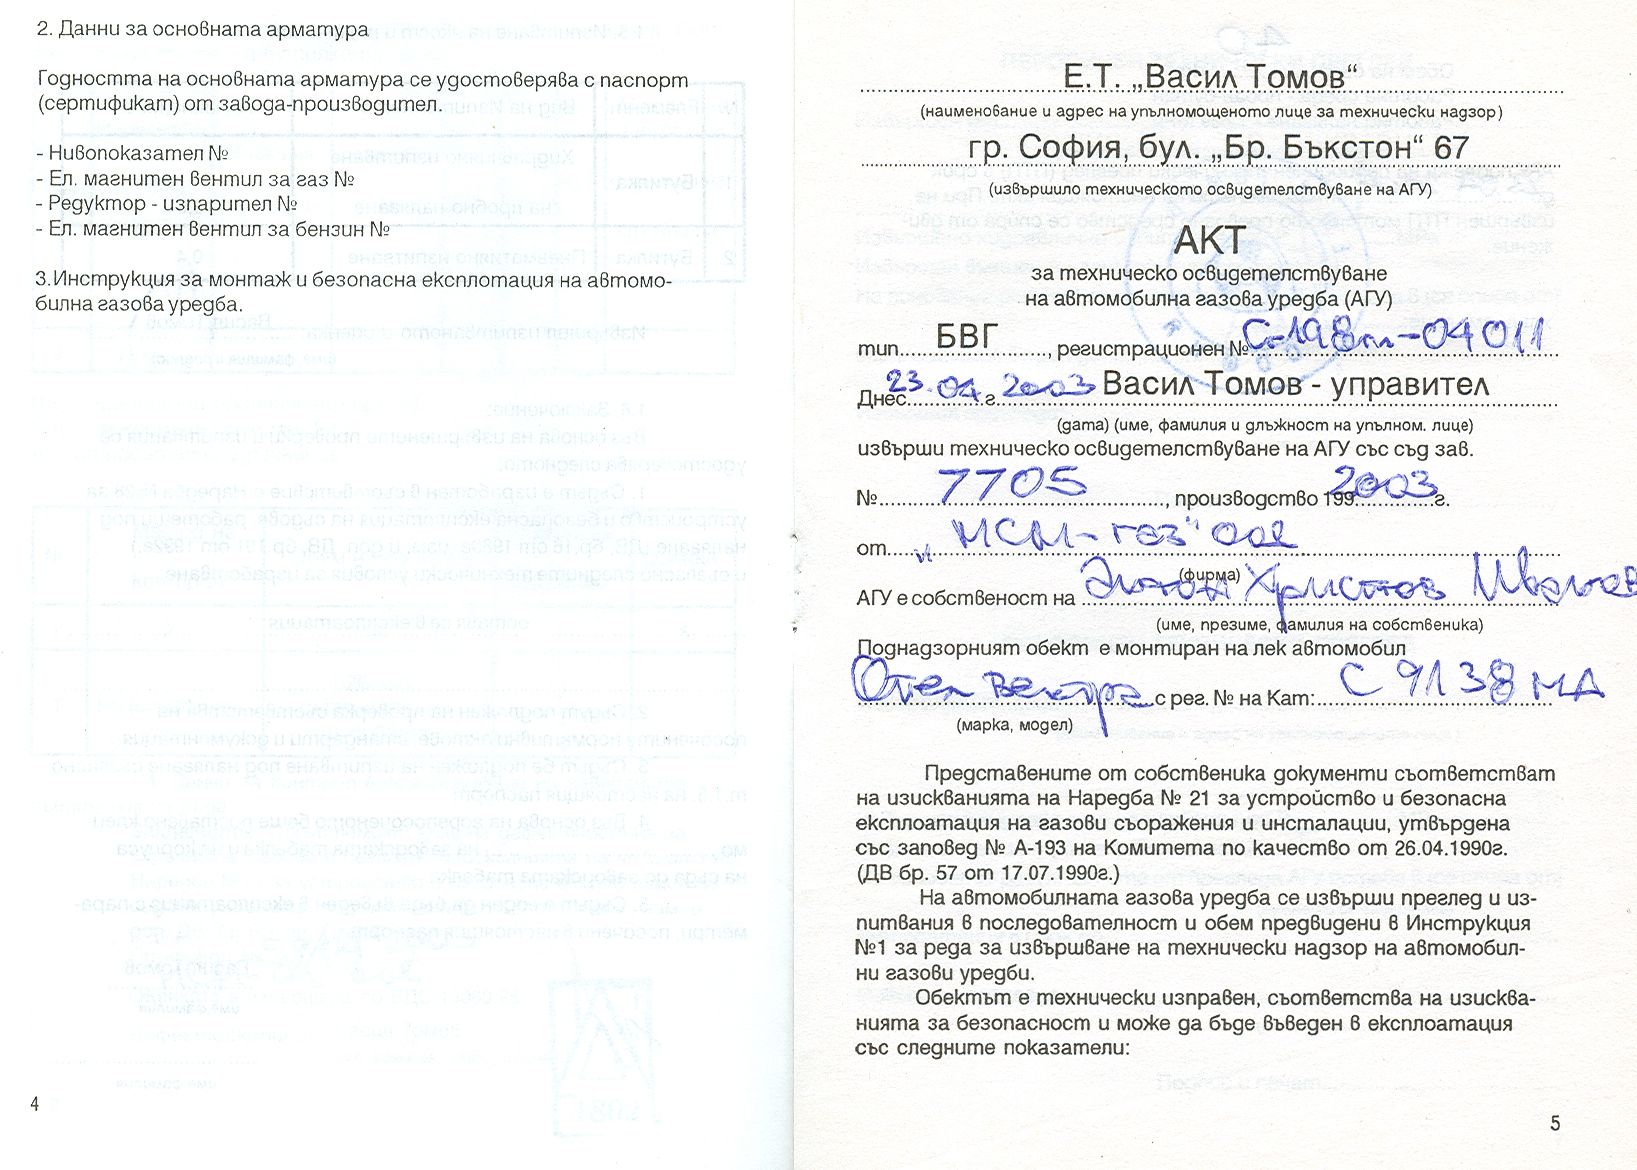 2. Данни за основната арматура
Годността на основната арматура се удостоверява с паспорт
(сертификат) от завода-производител.
- Нивопоказател №
- Ел. магнитен вентил за газ №
- Редуктор - изпарител №
- Ел. магнитен вентил за бензин №
3.Инструкция за монтаж и безопасна експлотация на автомо-
билна газова уредба.
4
Е.Т. „Васил Томов“
(наименование и адрес на упълномощеното лице за технически надзор)
гр. София, бул. „Бр. Бъкстон“ 67
(извършило техническото освидетелствуване на АГУ)
АКТ
за техническо освидетелствуване
на автомобилна газова уредба (АГУ)
тип.....БВГ........, регистрационен № -04011
Днес 23.04.2003 г. Васил Томов - управител
(дата) (име, фамилия и длъжност на упълном. лице)
извърши техническо освидетелствуване на АГУ със съд зав.
№ 7705, производство 199 2003 г.
от "МСМ-газ" ООД
(фирма)
АГУ е собственост на Христов
(име, презиме, фамилия на собственика)
Поднадзорният обект е монтиран на лек автомобил
Опел Вектра с рег. № на Кат: С 9138 МА
(марка, модел)
Представените от собственика документи съответстват
на изискванията на Наредба № 21 за устройство и безопасна
експлоатация на газови съоражения и инсталации, утвърдена
със заповед № А-193 на Комитета по качество от 26.04.1990г.
(ДВ бр. 57 от 17.07.1990г.)
На автомобилната газова уредба се извърши преглед и из-
питвания в последователност и обем предвидени в Инструкция
№1 за реда за извършване на технически надзор на автомобил-
ни газови уредби.
Обектът е технически изправен, съответства на изисква-
нията за безопасност и може да бъде въведен в експлоатация
със следните показатели:
5